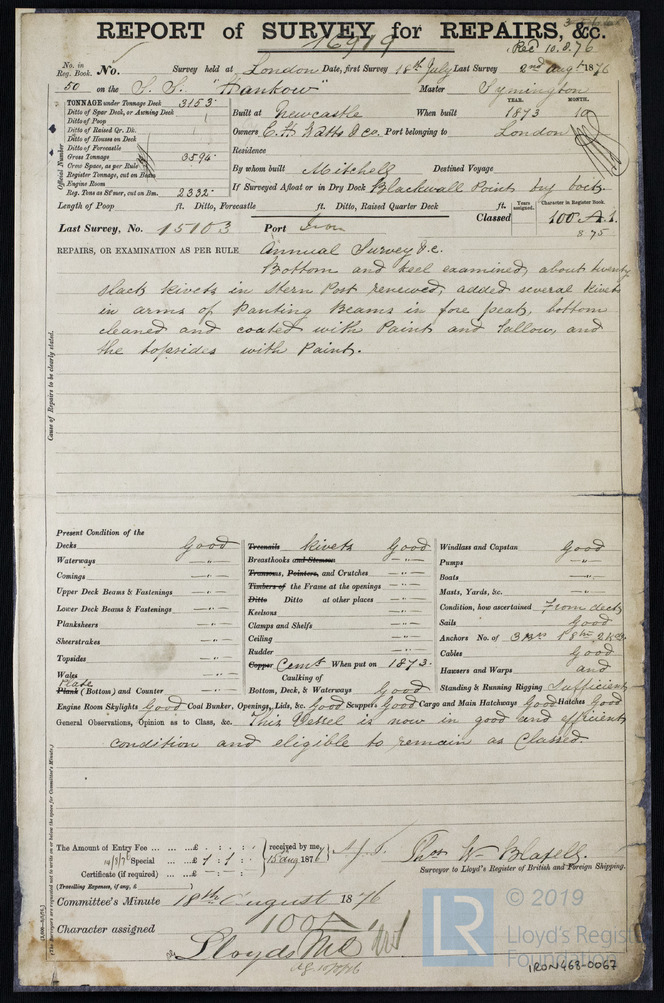 REPORT of SURVEY for REPAIRS, &c.
16919
Rec 10.8.76
No. in Reg. Book. No. Survey held at London Date, first Survey 18th July Last Survey 2nd Augt 1876
50 on the S.S. "Hankow" Master Symington
TONNAGE under Tonnage Deck 3153
Ditto of Spar Deck, or Awning Deck
Ditto of Poop
Ditto of Raised Qr. Dk.
Ditto of Houses on Deck
Ditto of Forecastle
Gross Tonnage 3594
Crew Space, as per Rule
Register Tonnage, cut on Beam
Engine Room
Reg. Tons as St'mer, cut on Bm. 2332
Official Number
YEAR. MONTH.
Built at Newcastle When built 1873 10
Owners Port belonging to London
Residence
By whom built Mitchell Destined Voyage
If Surveyed Afloat or in Dry Dock Blackwall Point dry dock
Length of Poop ft. Ditto, Forecastle ft. Ditto, Raised Quarter Deck ft.
Years assigned. Character in Register Book.
Last Survey, No. 15103 Port Iron Classed 100 A.1.
8.75
REPAIRS, OR EXAMINATION AS PER RULE Annual Survey &c.
Bottom and keel examined, about twenty
slack rivets in Stern Post renewed, added several rivets
in arms of Panting Beams in fore peak, bottom
cleaned and coated with Paint and Tallow, and
the topsides with Paint.
Cause of Repairs to be clearly stated.
Present Condition of the
Decks Good
Waterways —"—
Comings —"—
Upper Deck Beams & Fastenings —"—
Lower Deck Beams & Fastenings —"—
Planksheers —"—
Sheerstrakes —"—
Topsides —"—
Wales —"—
Plate
Plank (Bottom) and Counter —"—
Treenails Rivets Good
Breasthooks and Stemson —"—
Transoms, Pointers, and Crutches —"—
Timbers of the Frame at the openings —"—
Ditto Ditto at other places —"—
Keelsons —"—
Clamps and Shelfs —"—
Ceiling —"—
Rudder —"—
Copper Cemt When put on 1873.
Caulking of
Bottom, Deck, & Waterways Good
Windlass and Capstan Good
Pumps —"—
Boats —"—
Masts, Yards, &c. —"—
Condition, how ascertained From deck
Sails Good
Anchors No. of
Cables Good
Hawsers and Warps and
Standing & Running Rigging Sufficient
Engine Room Skylights Good Coal Bunker, Openings, Lids, &c. Good Scuppers Good Cargo and Main Hatchways Good Hatches Good
General Observations, Opinion as to Class, &c. This Vessel is now in good and efficient
condition and eligible to remain as Classed.
The Amount of Entry Fee ... ... ...£ : :
Special ... ...£ 1 : 1 :
Certificate (if required) ... ...£ : :
(Travelling Expenses, if any, £ )
received by me, 15 Aug 1876
Thos W.
Surveyor to Lloyd's Register of British and Foreign Shipping.
Committee's Minute 18th August 1876
Character assigned 100 A 1
Lloyds MC
(The Surveyors are requested not to write on or below the space for Committee's Minute.)
LR
© 2019
Lloyd's Register
Foundation
IRON468-0067